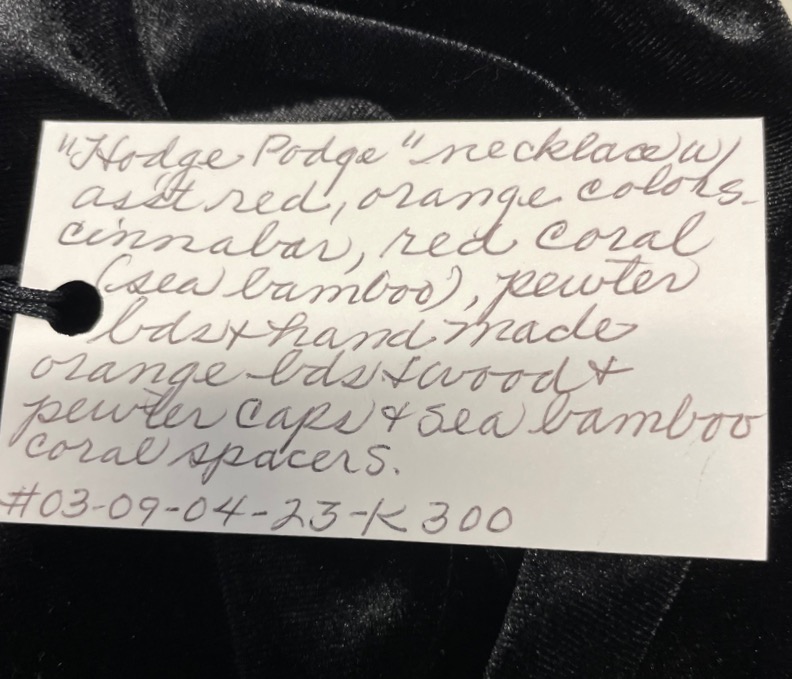 "Hodge Podge" necklace w/
ass't red, orange colors.
cinnabar, red coral
(sea bamboo), pewter
bds + hand made
orange bds + wood +
pewter caps + sea bamboo
coral spacers.
#03-09-04-23-K 300